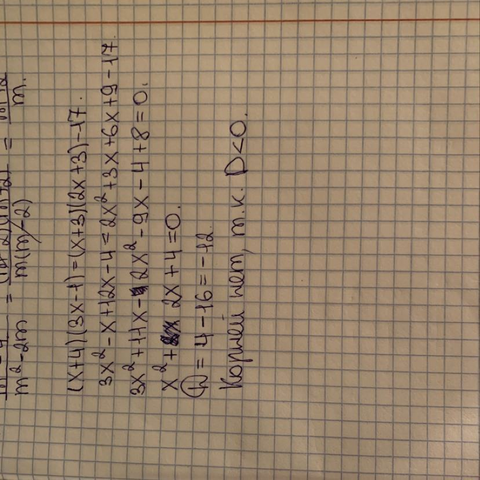 m² - 2m = m(m-2) = m.
(x+4)(3x-1)=(x+3)(2x+3)-17.
3x²-x+12x-4=2x²+3x+6x+9-17
3x²+11x-2x²-9x-4+8=0.
x²+2x+4=0.
D=4-16=-12
Корней нет, т.к. D<0.